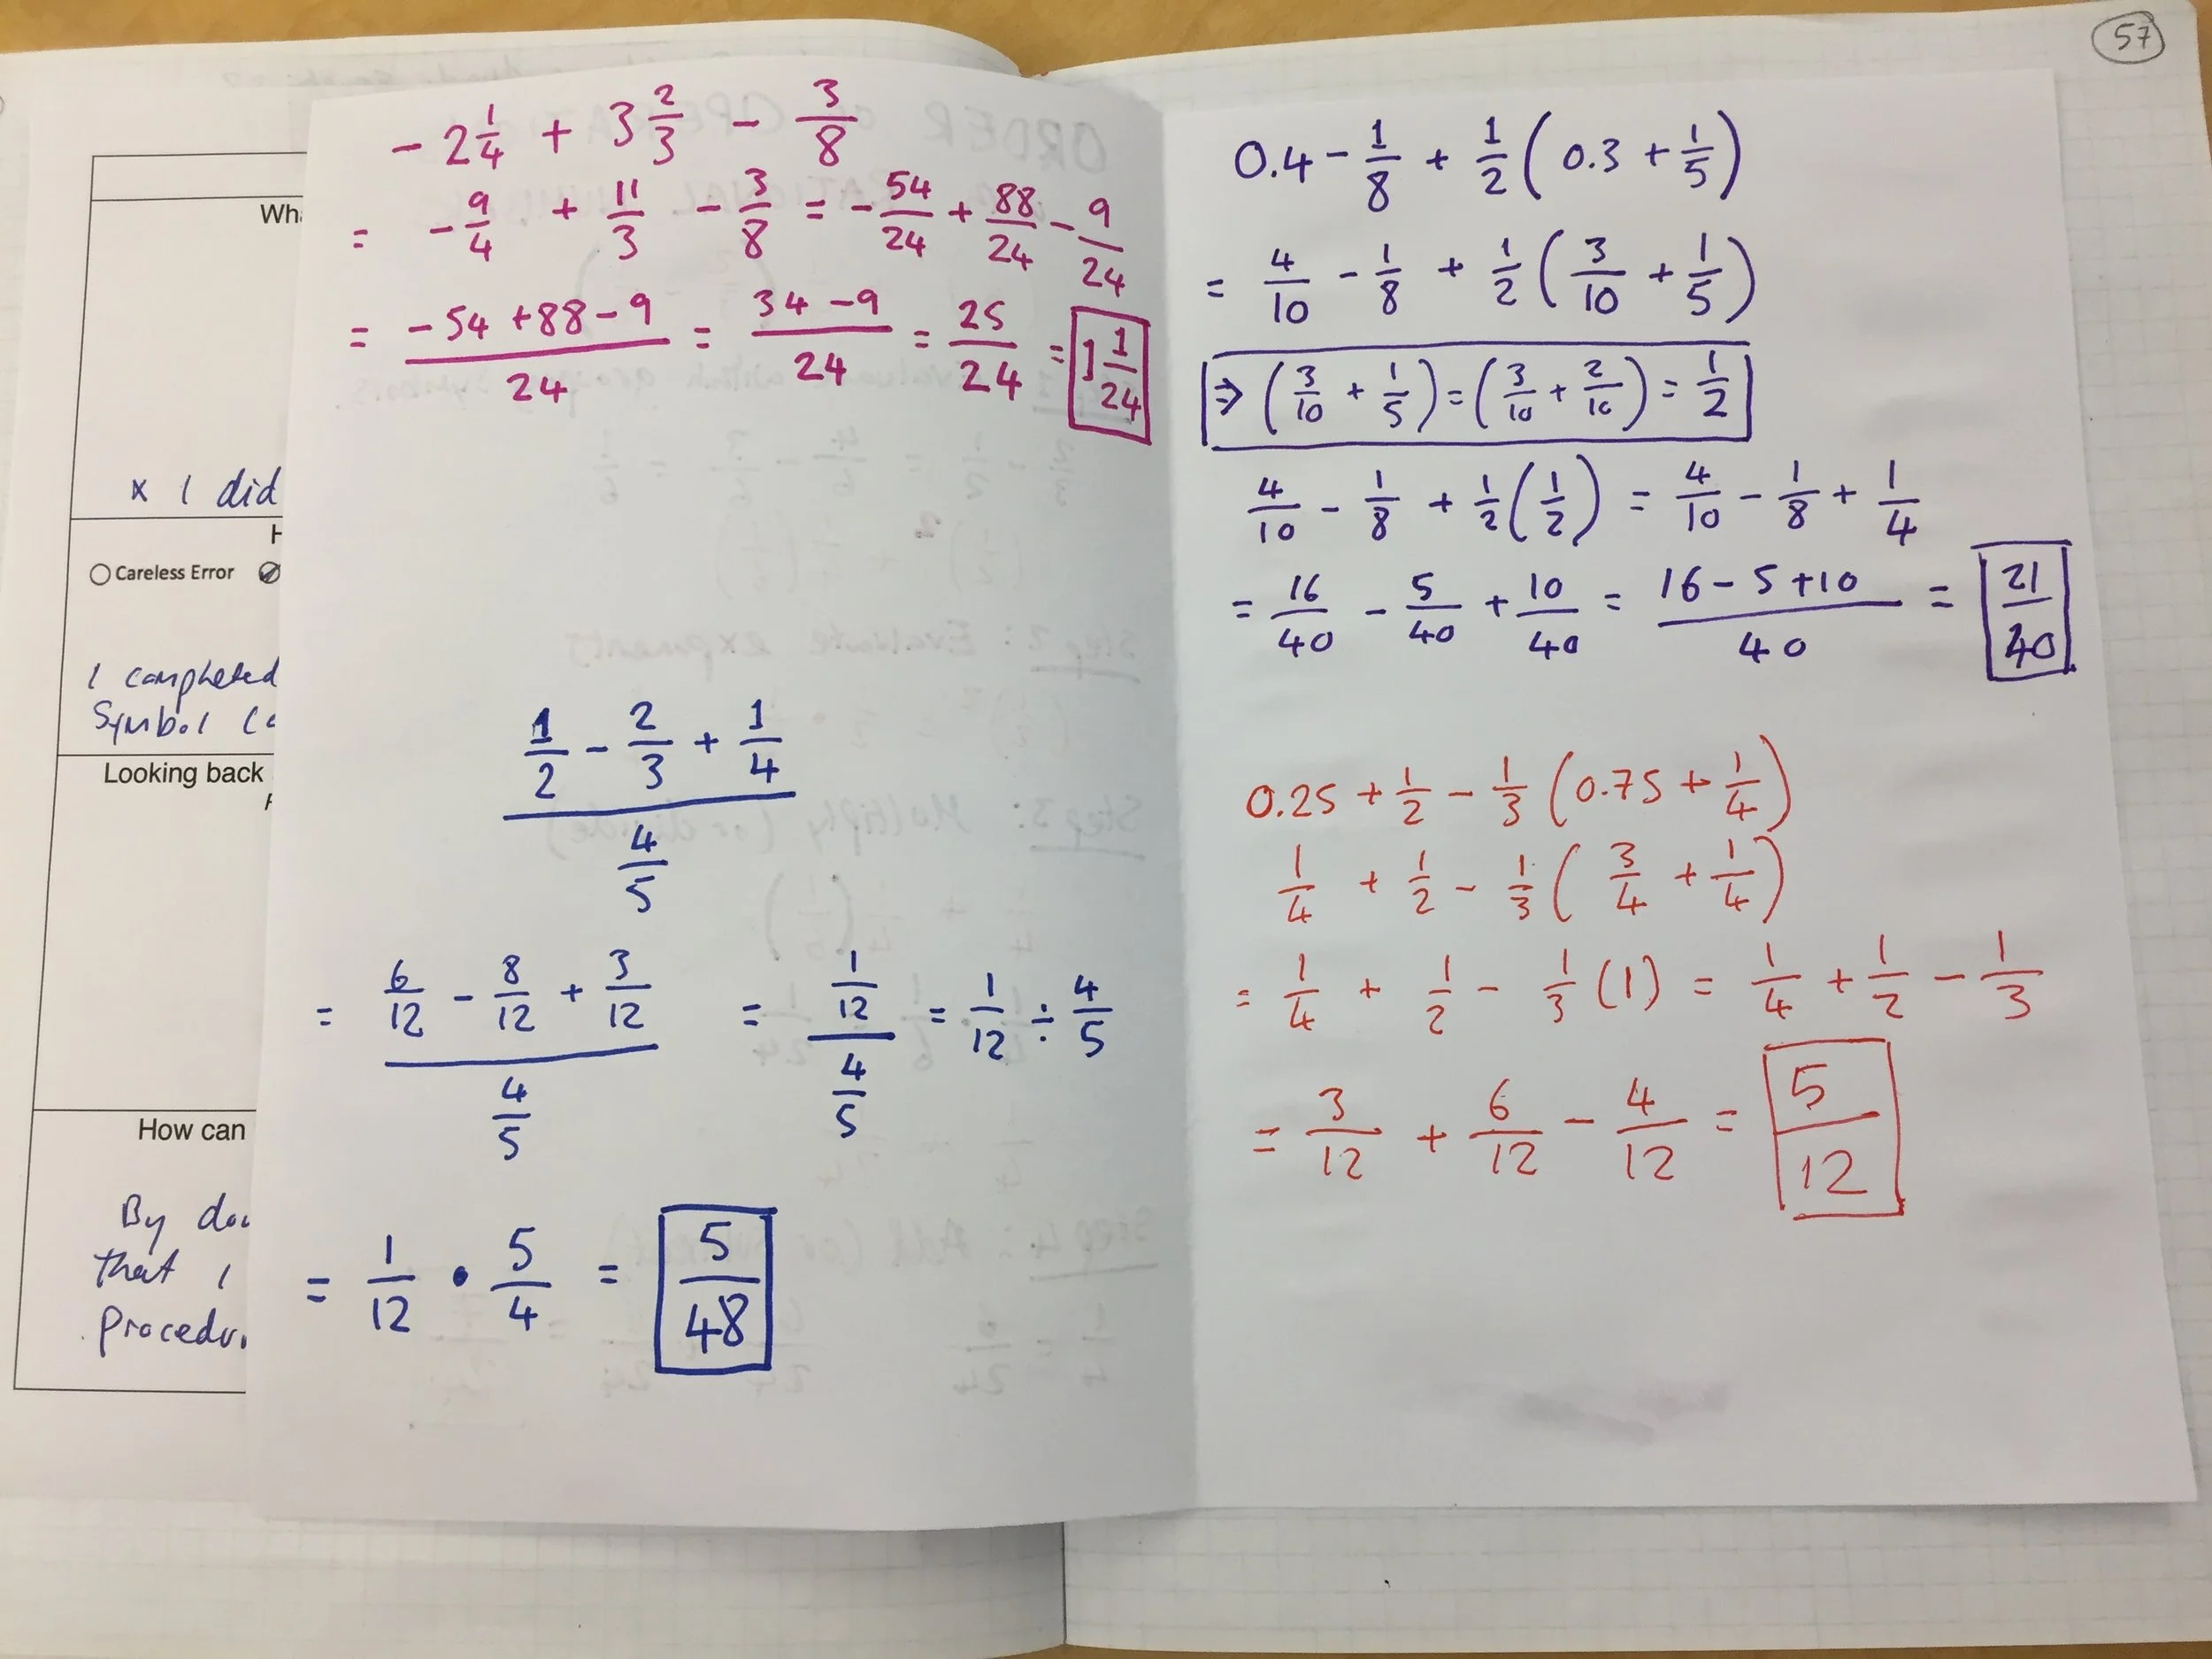 57
Wha
x I did
H
Careless Error
I completed
Symbol (
Looking back
How can
By doi
that I
Procedu
-2 1/4 + 3 2/3 - 3/8
= -9/4 + 11/3 - 3/8 = -54/24 + 88/24 - 9/24
= (-54 +88-9)/24 = (34-9)/24 = 25/24 = 1 1/24
(1/2 - 2/3 + 1/4)/(4/5)
= (6/12 - 8/12 + 3/12)/(4/5) = (1/12)/(4/5) = 1/12 ÷ 4/5
= 1/12 • 5/4 = 5/48
0.4 - 1/8 + 1/2 (0.3 + 1/5)
= 4/10 - 1/8 + 1/2 (3/10 + 1/5)
⇒ (3/10 + 1/5) = (3/10 + 2/10) = 1/2
4/10 - 1/8 + 1/2 (1/2) = 4/10 - 1/8 + 1/4
= 16/40 - 5/40 + 10/40 = (16 - 5 +10)/40 = 21/40
0.25 + 1/2 - 1/3 (0.75 + 1/4)
1/4 + 1/2 - 1/3 (3/4 + 1/4)
= 1/4 + 1/2 - 1/3 (1) = 1/4 + 1/2 - 1/3
= 3/12 + 6/12 - 4/12 = 5/12